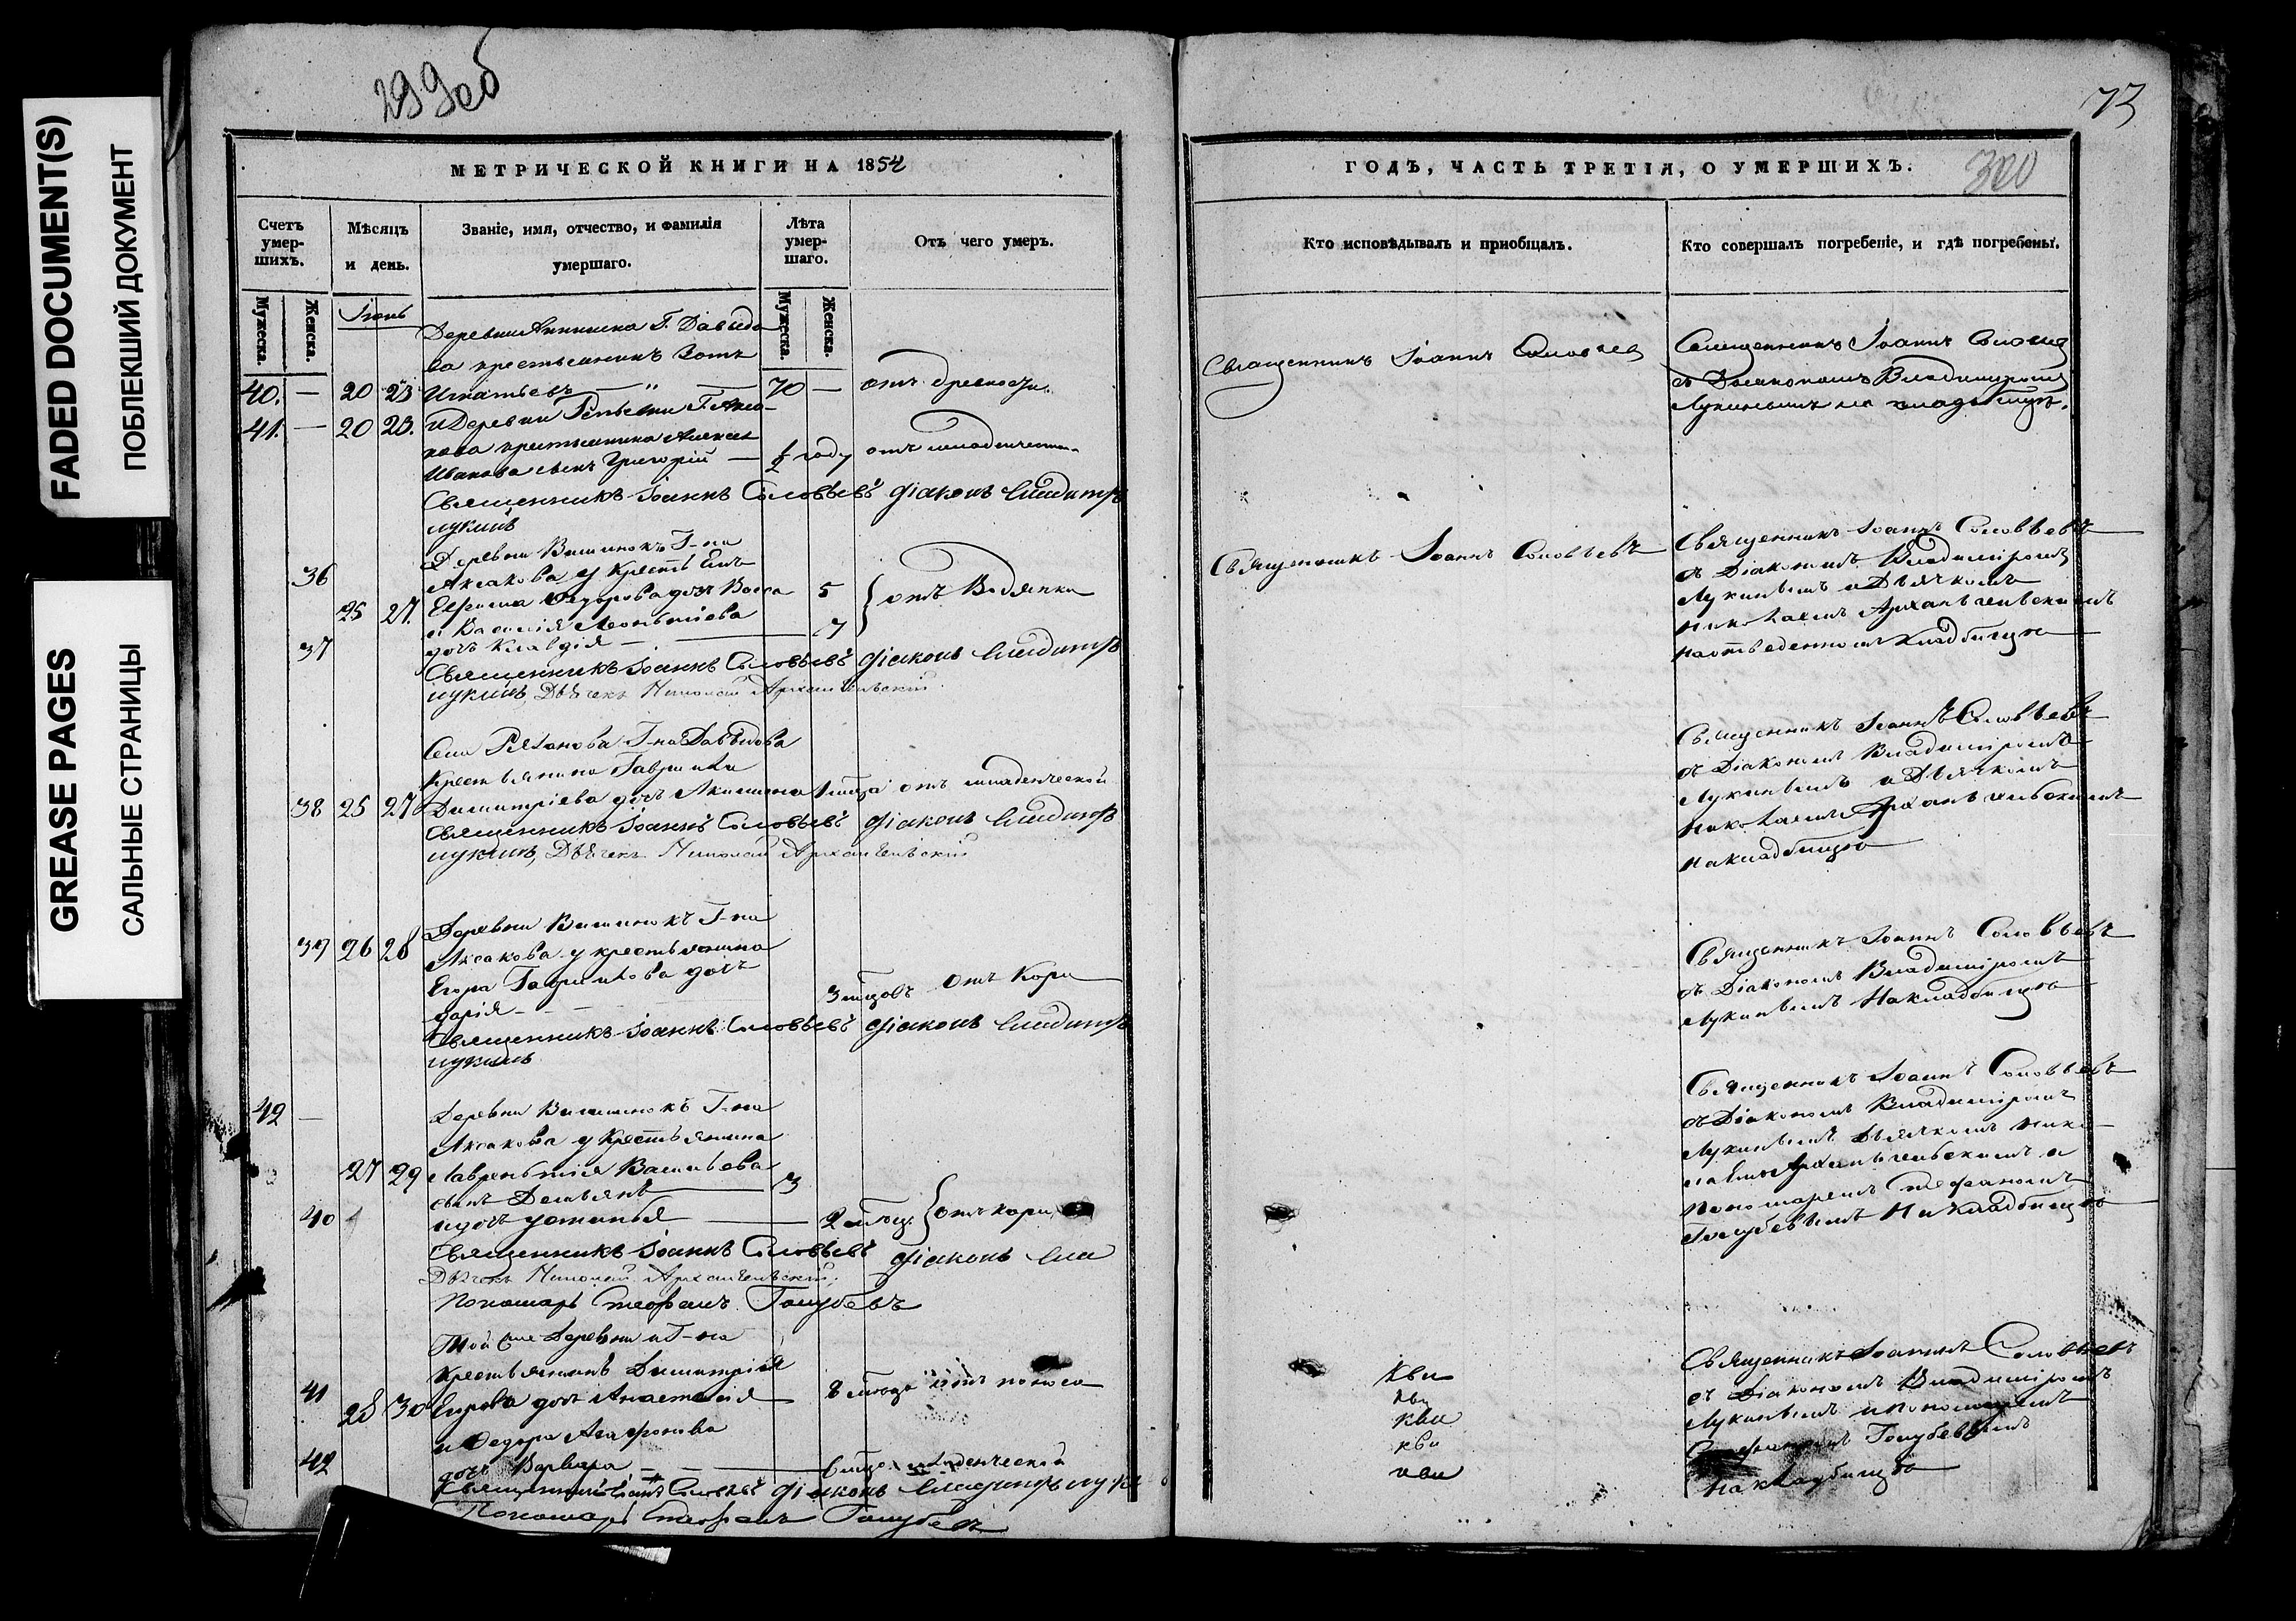 FADED DOCUMENT(S)
ПОБЛЕКШИЙ ДОКУМЕНТ
GREASE PAGES
САЛЬНЫЕ СТРАНИЦЫ
299об
МЕТРИЧЕСКОЙ КНИГИ НА 1854
Счетъ умер-шихъ.
Мѣсяцъ и день.
Званіе, имя, отчество, и фамилія умершаго.
Лѣта умер-шаго.
Отъ чего умеръ.
Мужеска.
Женска.
Мужеска.
Женска.
Іюнь
Г. Давыдо
ва крестьянинъ
40. — 20 23 Игнатьевъ — " — 70 — отъ древности.
41. — 20 23. Деревни
крестьянина Алексея
Иванова сынъ Григорій — ½ году отъ младенческой
Священникъ Іоаннъ Соловьевъ Діаконъ Владимiръ
Лукинъ
36 Деревни Вишинокъ Г-на
Аксакова у крест
25 27. Федорова дочь Васса 5 отъ Водянки
и Василія Леонтіева
37 дочь Клавдія — 7
Священникъ Іоаннъ Соловьевъ Діаконъ Владимiръ
Лукинъ, Дьячекъ Николай Архангельскій
Села Рязанова Г-на Давыдова
Крестьянина Гаврилы
38 25 27 Димитріева дочь Акилина 1 отъ младенческой
Священникъ Іоаннъ Соловьевъ Діаконъ Владимiръ
Лукинъ, Дьячекъ Николай Архангельскій
Деревни Вишинокъ Г-на
39 26 28 Аксакова у крестьянина
Егора Гаврилова дочь
Дарія — 3 отъ Кори
Священникъ Іоаннъ Соловьевъ Діаконъ Владимiръ
Лукинъ
42 — Деревни Вишинокъ Г-на
Аксакова у крестьянина
27 29 Лаврентія Васильева
сынъ Демьянъ — 3
40 и дочь Устинья — 2 отъ кори
Священникъ Іоаннъ Соловьевъ Діаконъ Вла
Дьячекъ Николай Архангельскій,
Пономарь Стефанъ Голубевъ
Той же Деревни и Г-на
Крестьянинъ Димитрія
41 28 30 Егорова дочь Анастасія 8 отъ поноса
и Федора Агафонова
42 дочь Варвара, — младенческой
Священникъ Іоаннъ Соловьевъ Діаконъ Владимiръ Луки
Пономарь Стефанъ Голубевъ
73
ГОДЪ, ЧАСТЬ ТРЕТІЯ, О УМЕРШИХЪ.
300
Кто исповѣдывалъ и пріобщалъ.
Кто совершалъ погребеніе, и гдѣ погребены.
Священникъ Іоаннъ Соловьев
Священникъ Іоаннъ Солов
съ Діакономъ Владимиромъ
Лукинымъ на кладбищѣ.
Священникъ Іоаннъ Соловьевъ
Священникъ Іоаннъ Соловьевъ
съ Діакономъ Владимiромъ
Лукинымъ и Дьячкомъ
Николаемъ Архангельскимъ
на отведенномъ кладбищѣ
Священникъ Іоаннъ Соловьевъ
съ Діакономъ Владимiромъ
Лукинымъ и Дьячкомъ
Николаемъ Архангельскимъ
на кладбищѣ
Священникъ Іоаннъ Соловьевъ
съ Діакономъ Владимiромъ
Лукинымъ На кладбищѣ
Священникъ Іоаннъ Соловьевъ
съ Діакономъ Владимiромъ
Лукинымъ Дьячкомъ Нико
лаемъ Архангельскимъ и
пономаремъ Стефаномъ
Голубевымъ На кладбищѣ
Священникъ Іоаннъ Соловьевъ
съ Діакономъ Владимiромъ
Лукинымъ и пономаремъ
Стефаномъ Голубевымъ
на кладбищѣ